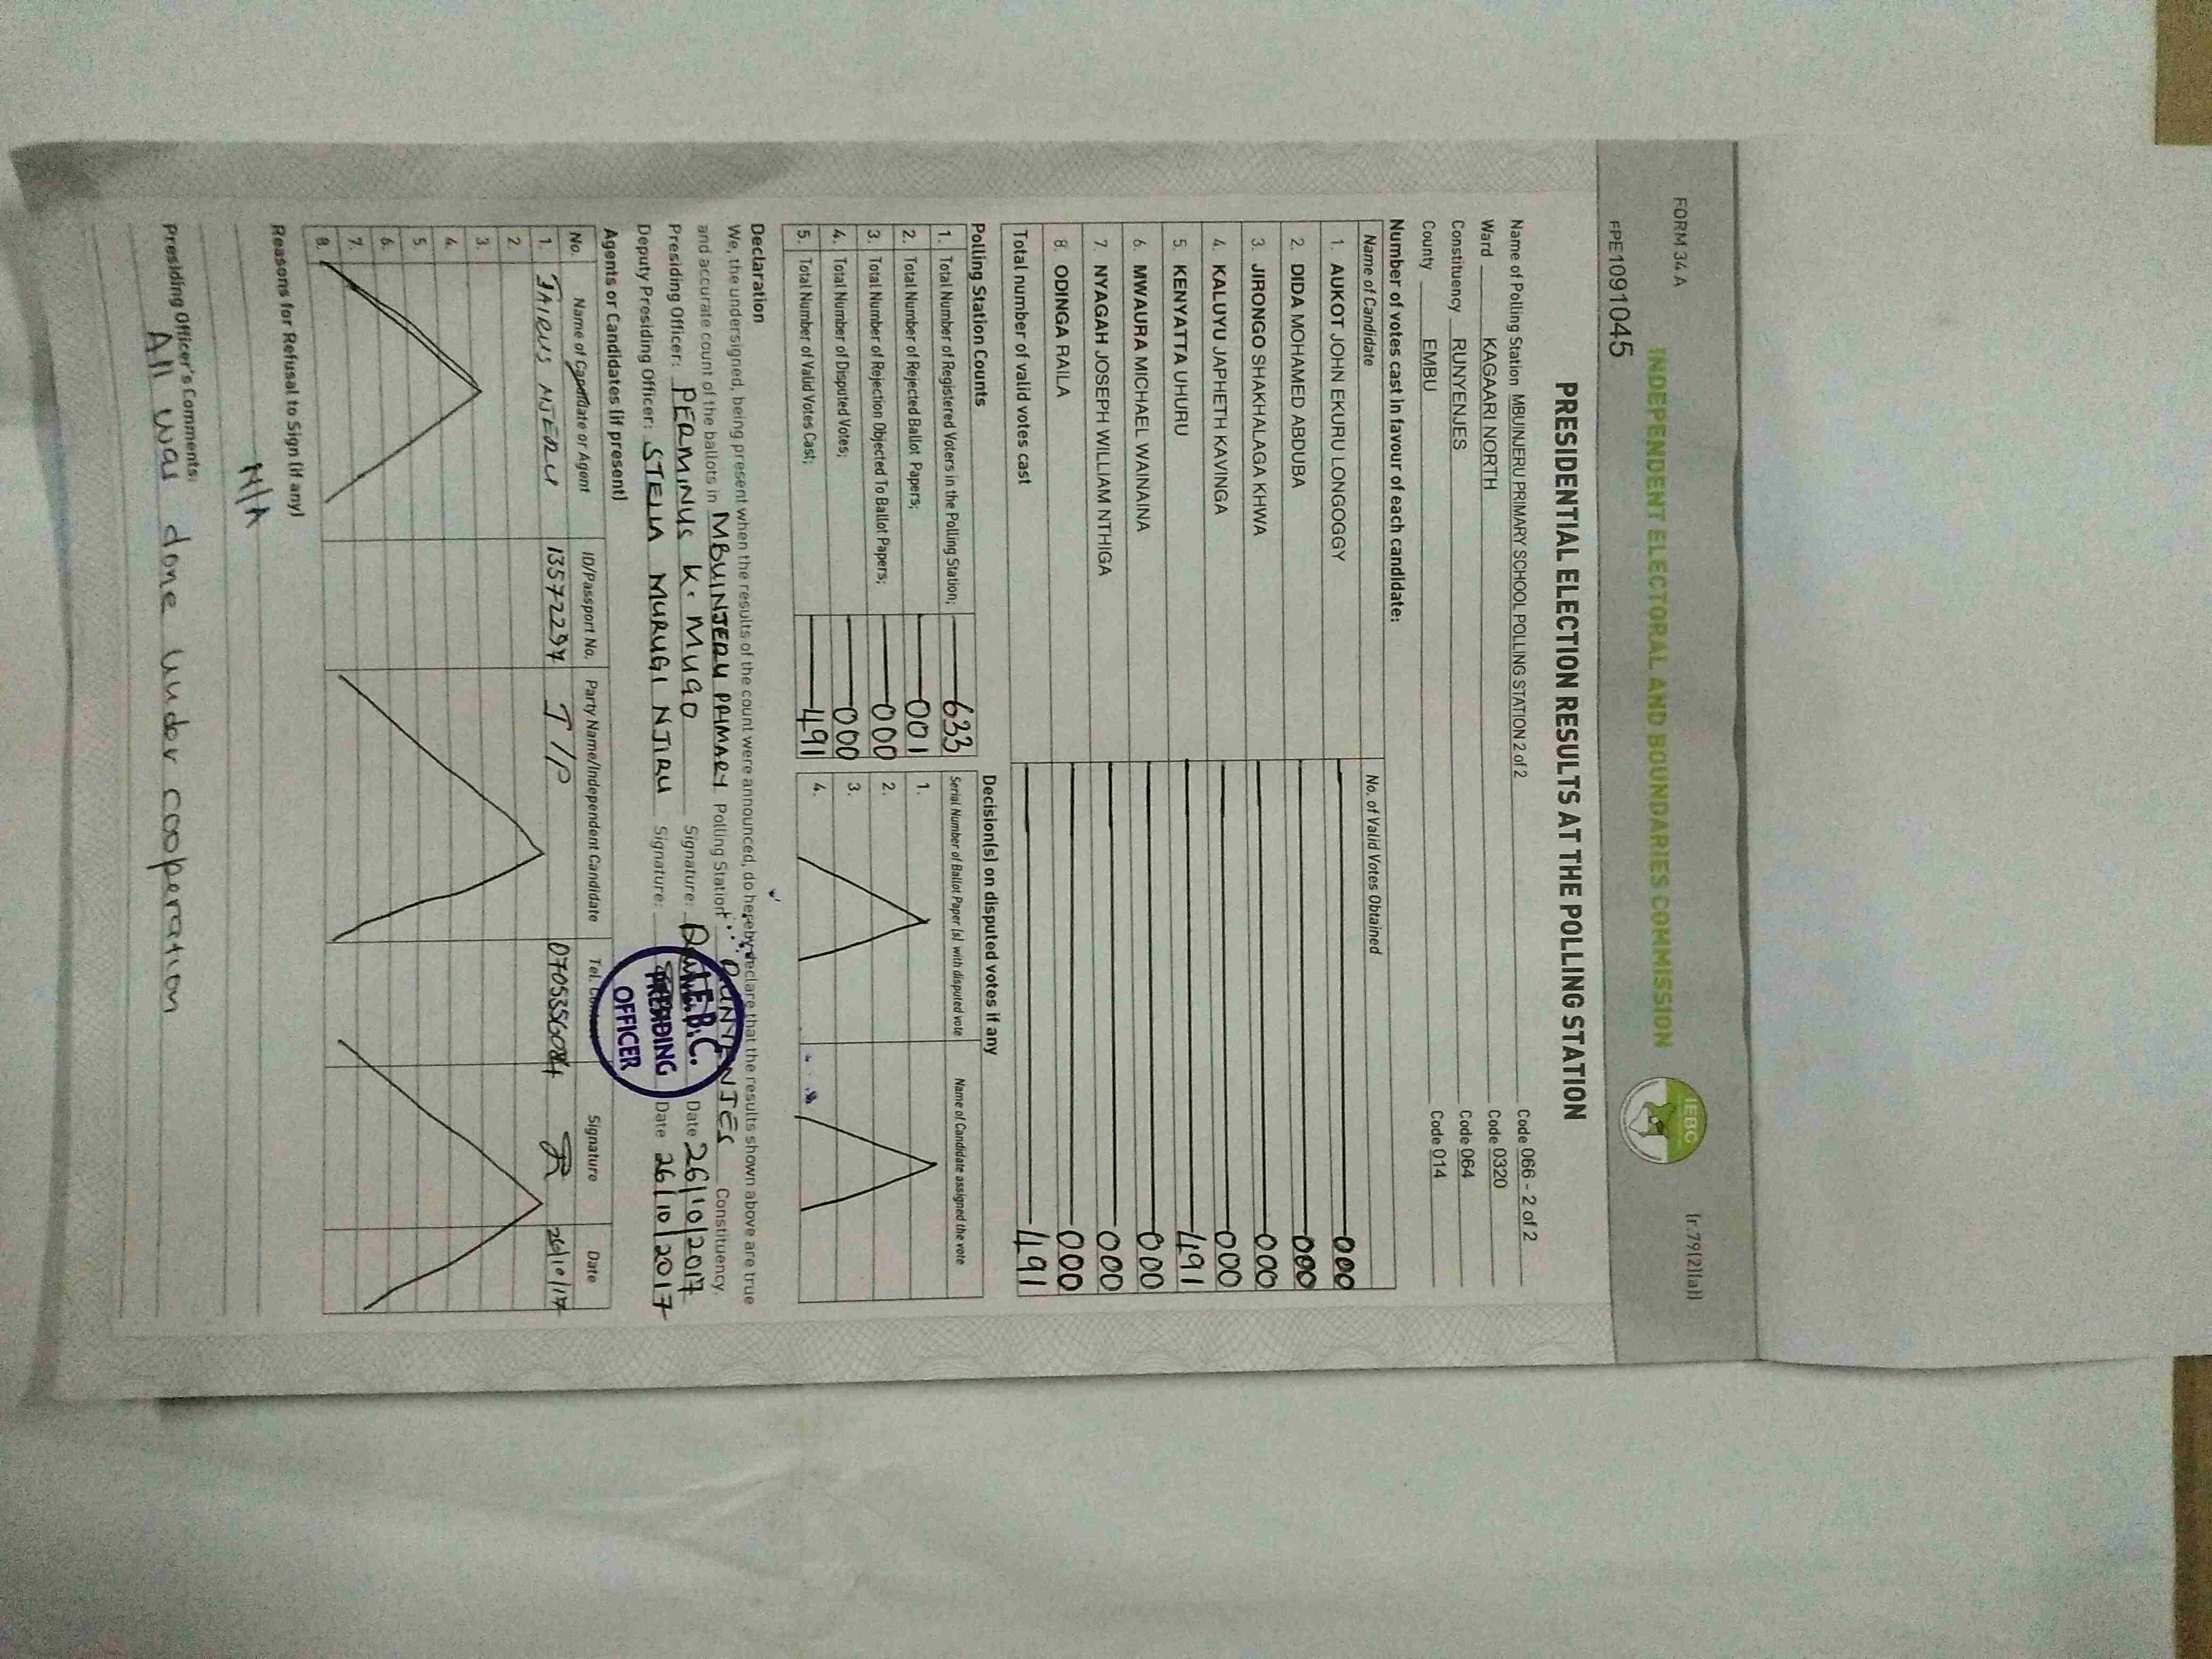 FORM 34 A
(r.79(2)(a))
INDEPENDENT ELECTORAL AND BOUNDARIES COMMISSION
IEBC
FPE1091045
PRESIDENTIAL ELECTION RESULTS AT THE POLLING STATION
Name of Polling Station MBUINJERU PRIMARY SCHOOL POLLING STATION 2 of 2 Code 066 - 2 of 2
Ward KAGAARI NORTH Code 0320
Constituency RUNYENJES Code 064
County EMBU Code 014
Number of votes cast in favour of each candidate:
Name of Candidate No. of Valid Votes Obtained
1. AUKOT JOHN EKURU LONGOGGY 000
2. DIDA MOHAMED ABDUBA 000
3. JIRONGO SHAKHALAGA KHWA 000
4. KALUYU JAPHETH KAVINGA 000
5. KENYATTA UHURU 491
6. MWAURA MICHAEL WAINAINA 000
7. NYAGAH JOSEPH WILLIAM NTHIGA 000
8. ODINGA RAILA 000
Total number of valid votes cast 491
Polling Station Counts
1. Total Number of Registered Voters in the Polling Station; 633
2. Total Number of Rejected Ballot Papers; 001
3. Total Number of Rejection Objected To Ballot Papers; 000
4. Total Number of Disputed Votes; 000
5. Total Number of Valid Votes Cast; 491
Decision(s) on disputed votes if any
Serial Number of Ballot Paper (s) with disputed vote Name of Candidate assigned the vote
1.
2.
3.
4.
Declaration
We, the undersigned, being present when the results of the count were announced, do hereby declare that the results shown above are true
and accurate count of the ballots in MBUINJERU PRIMARY Polling Station RUNYENJES Constituency.
Presiding Officer: PERMINUS K. MUGO Signature: Date 26/10/2017
Deputy Presiding Officer: STELLA MURUGI NJIRU Signature: Date 26/10/2017
I.E.B.C.
PRESIDING
OFFICER
Agents or Candidates (if present)
No. Name of Candidate or Agent ID/Passport No. Party Name/Independent Candidate Tel. Contact Signature Date
1. JAIRUS NJERU 13572294 J/P 0705356084 26/10/17
2.
3.
4.
5.
6.
7.
8.
Reasons for Refusal to Sign (if any)
N/A
Presiding Officer's Comments:
All was done under cooperation